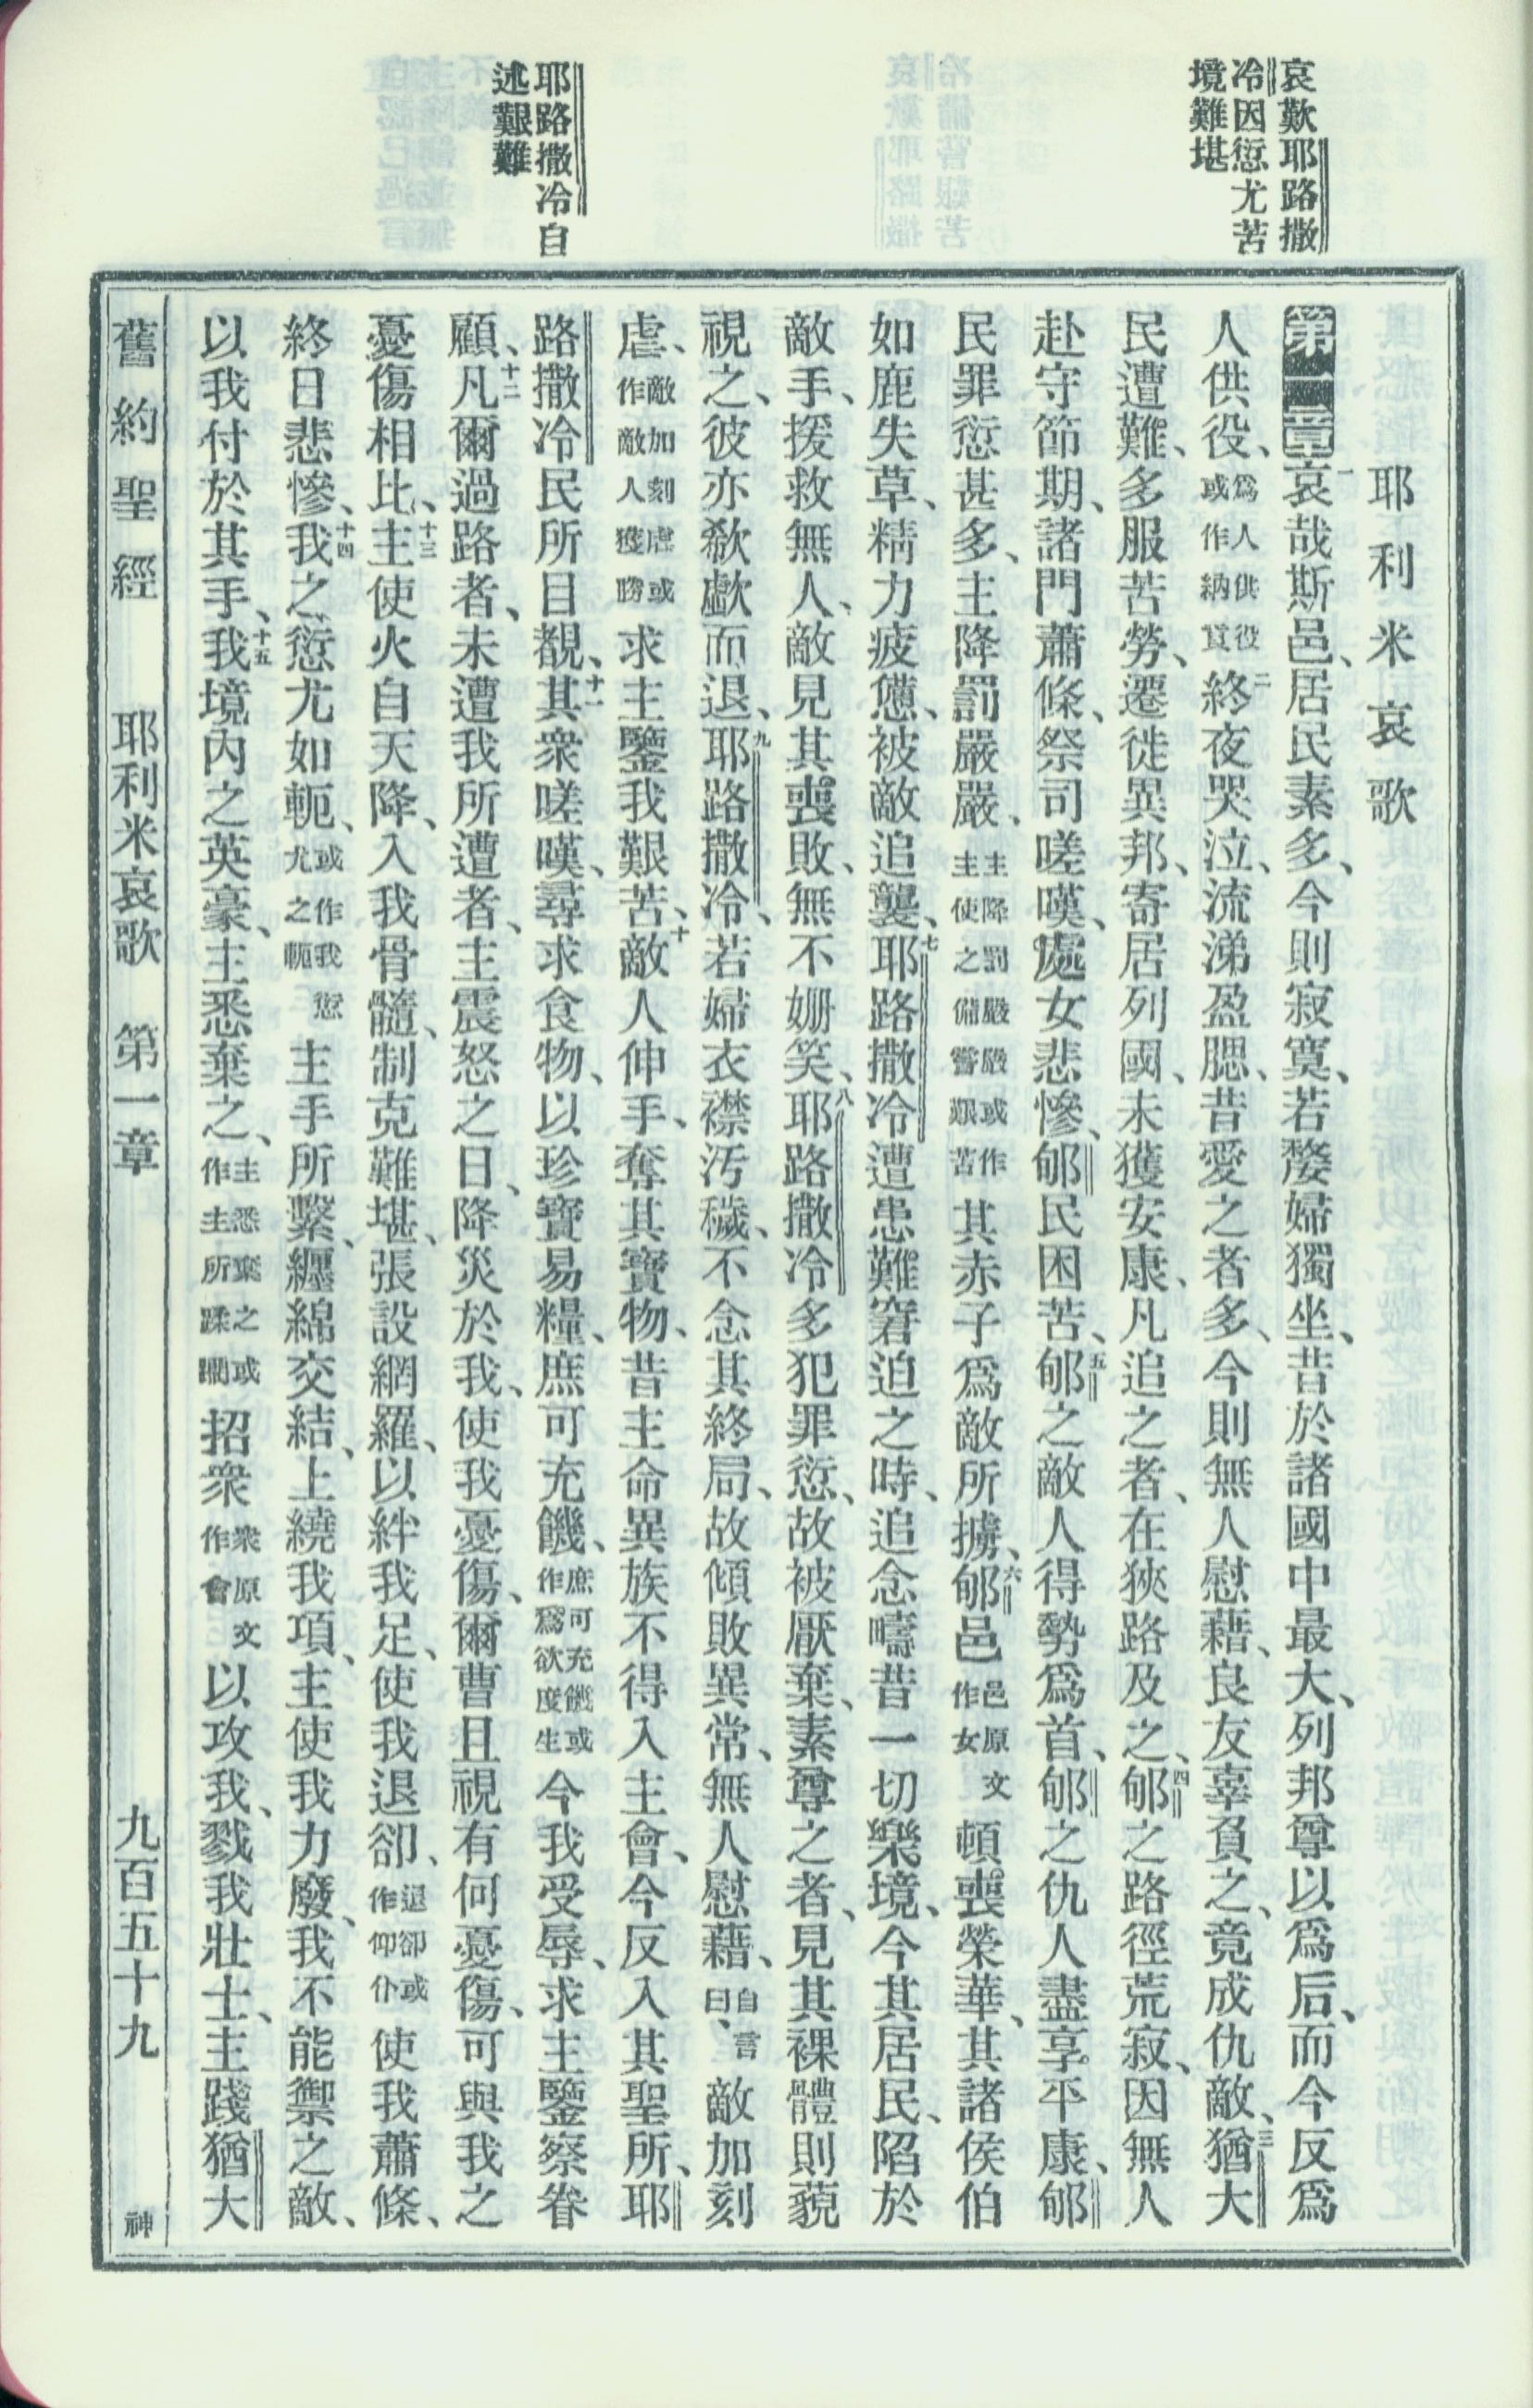 哀歎耶路撒
冷因愆尤苦
境難堪
耶路撒冷自
述艱難
耶利米哀歌
第一章一哀哉斯邑、居民素多、今則寂寞、若嫠婦獨坐、昔於諸國中最大、列邦尊以爲后、而今反爲
人供役、爲人供役或作納貢二終夜哭泣、流涕盈腮、昔愛之者多、今則無人慰藉、良友辜負之、竟成仇敵、三猶大
民遭難、多服苦勞、遷徙異邦、寄居列國、未獲安康、凡追之者、在狹路及之、四郇之路徑荒寂、因無人
赴守節期、諸門蕭條、祭司嗟嘆、處女悲慘、郇民困苦、五郇之敵人得勢爲首、郇之仇人盡享平康、郇
民罪愆甚多、主降罰嚴嚴、主降罰嚴嚴或作主使之備嘗艱苦其赤子爲敵所擄、六郇邑邑原文作女頓喪榮華、其諸侯伯
如鹿失草、精力疲憊、被敵追襲、七耶路撒冷遭患難窘迫之時、追念疇昔一切樂境、今其居民、陷於
敵手、援救無人、敵見其喪敗、無不姍笑、八耶路撒冷多犯罪愆、故被厭棄、素尊之者、見其裸體則藐
視之、彼亦欷歔而退、九耶路撒冷、若婦衣襟汚穢、不念其終局、故傾敗異常、無人慰藉、自言曰、敵加刻
虐、敵加刻虐或作敵人獲勝求主鑒我艱苦、十敵人伸手、奪其寶物、昔主命異族不得入主會、今反入其聖所、耶
路撒冷民所目覩、十一其衆嗟嘆、尋求食物、以珍寶易糧、庶可充饑、庶可充饑或作爲欲度生今我受辱、求主鑒察眷
顧、十二凡爾過路者、未遭我所遭者、主震怒之日、降災於我、使我憂傷、爾曹且視有何憂傷、可與我之
憂傷相比、十三主使火自天降、入我骨髓、制克難堪、張設網羅、以絆我足、使我退卻、退卻或作仰仆使我蕭條、
終日悲慘、十四我之愆尤如軛、或作我愆尤之軛主手所繫、纏綿交結、上繞我項、主使我力廢、我不能禦之敵、
以我付於其手、十五我境內之英豪、主悉棄之、主悉棄之或作主所蹂躪招衆衆原文作會以攻我、戮我壯士、主踐猶大
舊約聖經　耶利米哀歌　第一章　九百五十九　神